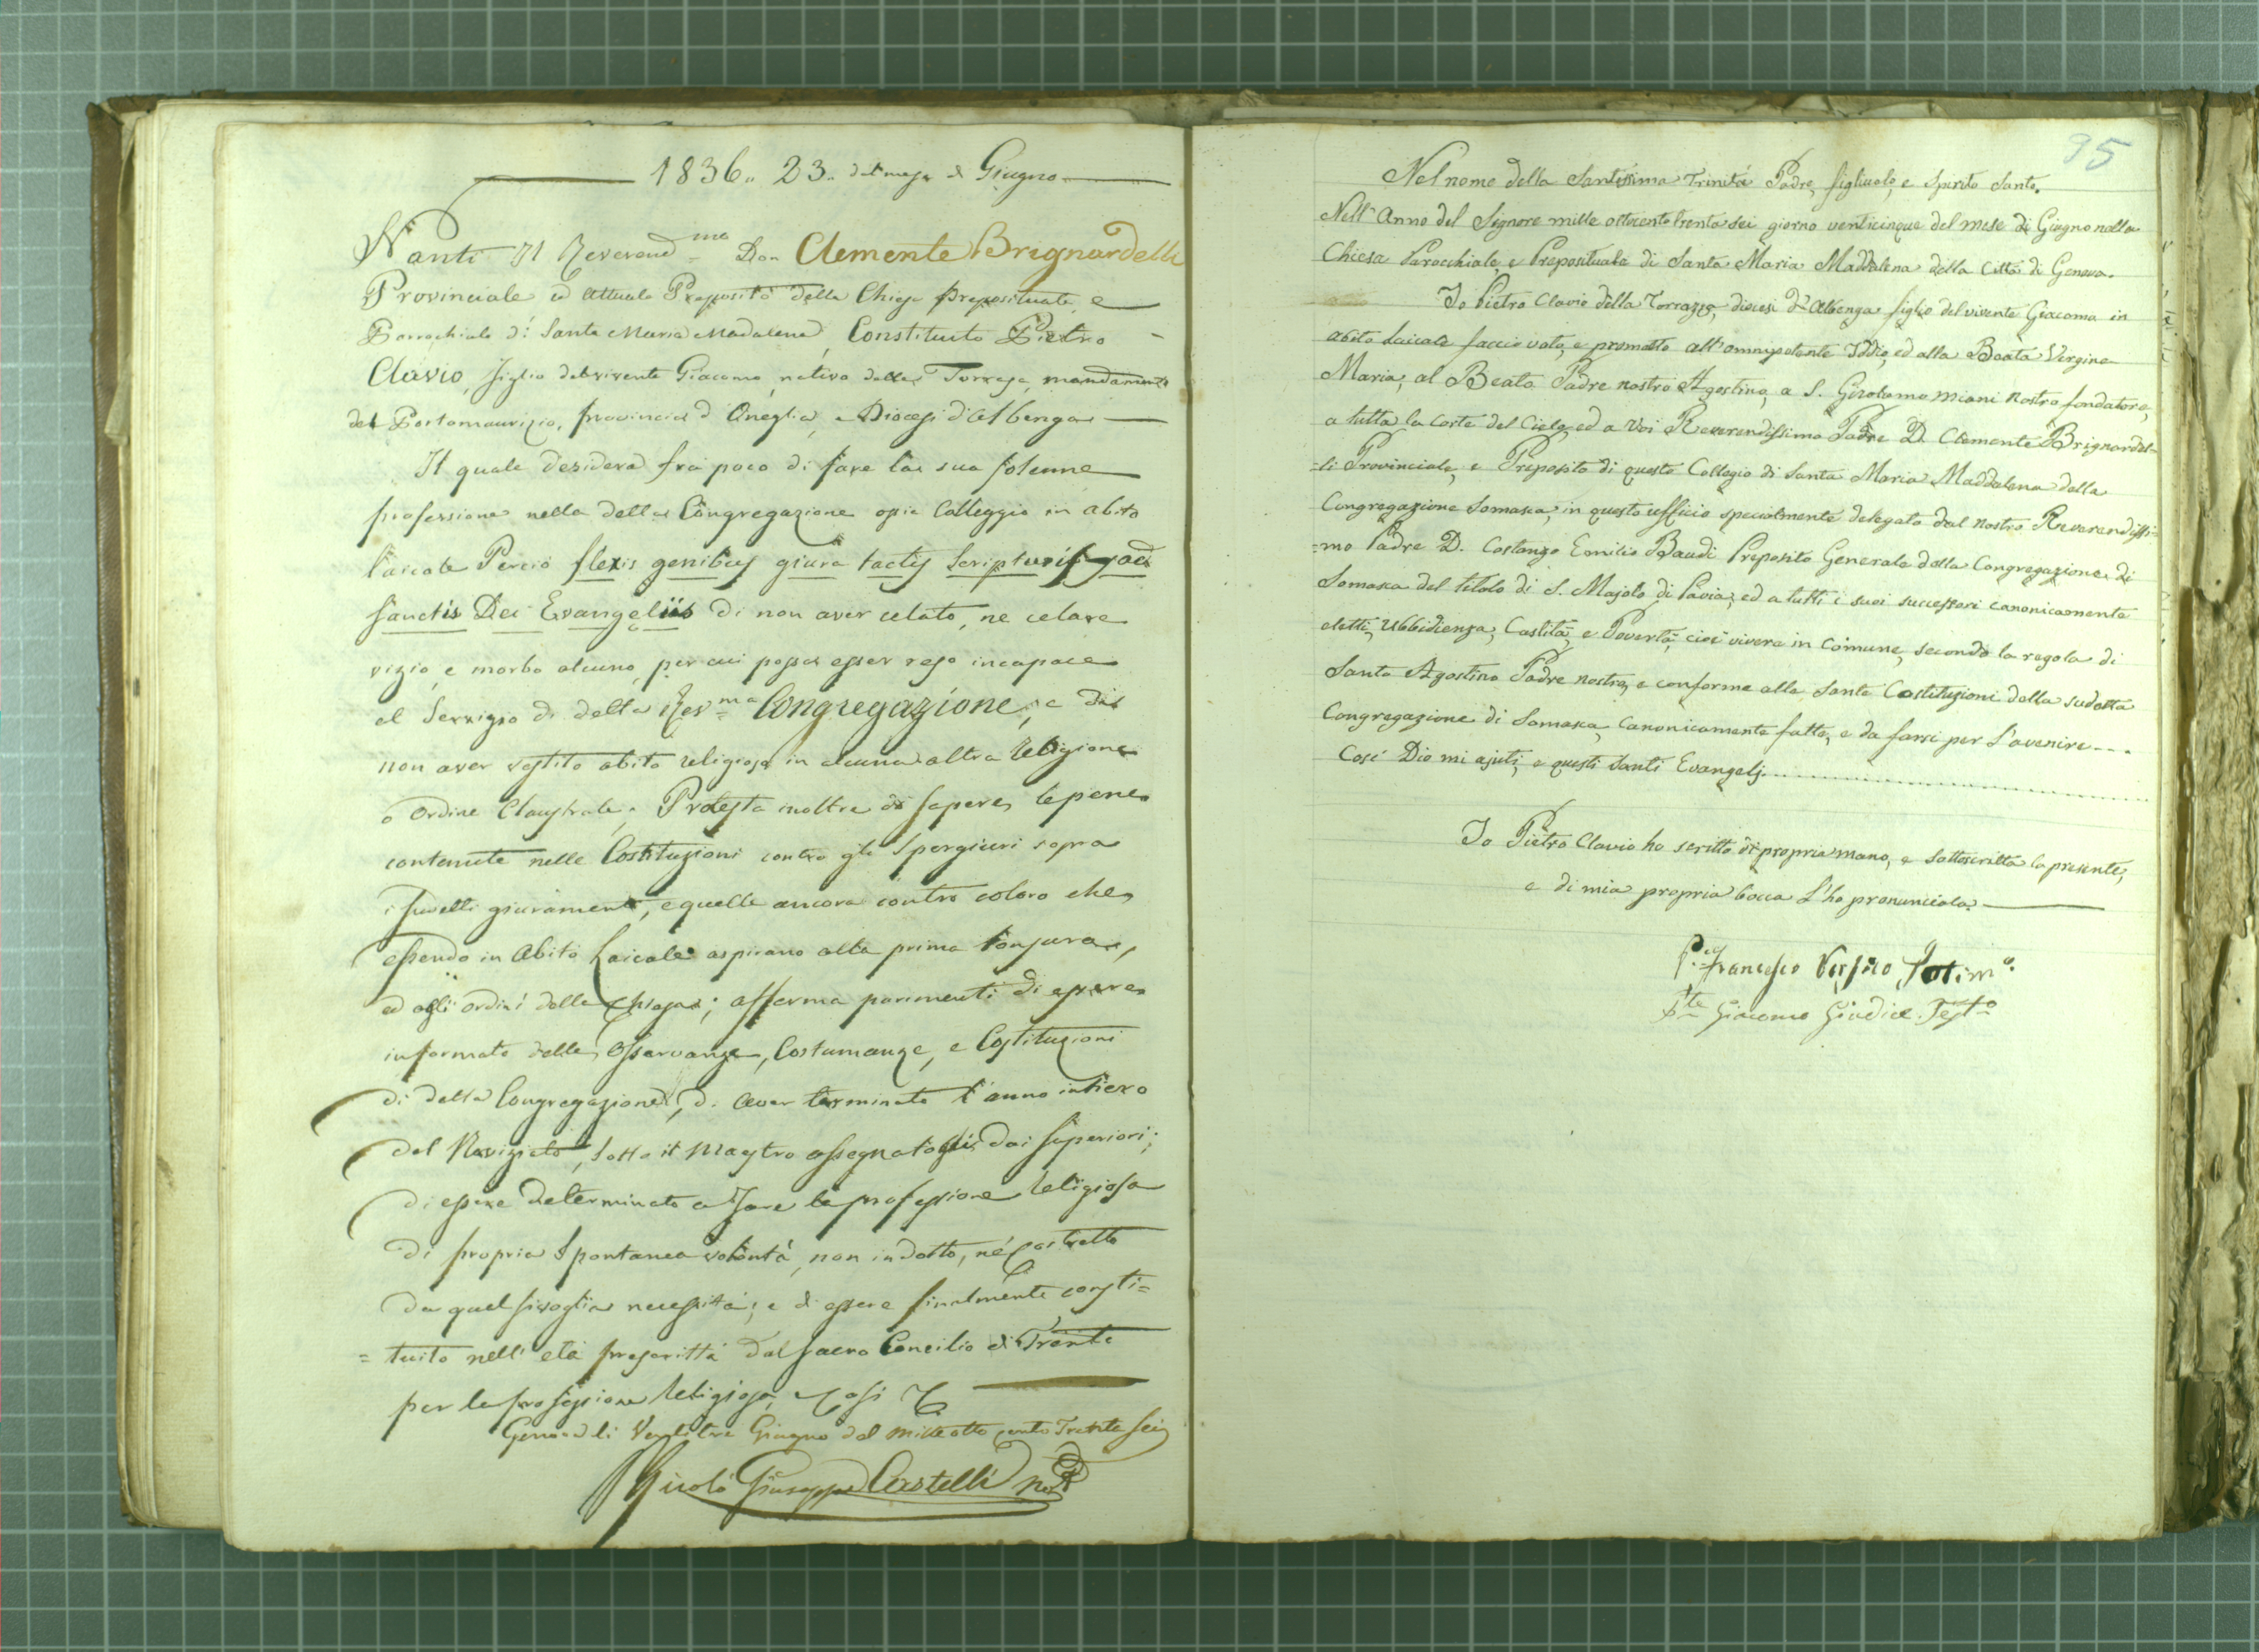 1836. 23. del mese di Giugno
Nanti Il Reverend.mo Don Clemente Brignardelli
Provinciale ed Attuale Preposito della Chiesa prepositurale, e
Parrochiale di Santa Maria Madalena, Constituito Pietro
Clavio, figlio del vivente Giacomo, nativo della Torraza, mandamento
del Portomaurizio, provincia d'Oneglia, e Diocesi d'Albenga
Il quale desidera frà poco di fare la sua solenne
professione nella detta Congregazione ossia Colleggio in abito
laicale Perciò flexis genibus giura tactis Scripturis ad
Sanctis Dei Evangeliis di non aver celato, ne celare
vizio, e morbo alcuno, per cui possa esser reso incapace
al Servizio di detta Rev.ma Congregazione, e di
non aver vestito abito religioso in alcuna altra Religione
o Ordine Claustrale; Protesta inoltre di sapere, le pene
contenute nelle Costituzioni contro gli Spergiuri sopra
i sudetti giuramenti, e quelle ancora contro coloro che
essendo in Abito Laicale aspirano alla prima tonsura,
ed agli ordini della Chiesa; afferma parimenti di essere
informato delle Osservanze, Costumanze, e Costituzioni
di detta Congregazione, di aver terminato l'anno intiero
del Noviziato, sotto il Maestro assegnatogli dai Superiori;
di essere determinato a fare la professione religiosa
di propria Spontanea volontà, non indotto, nè costretto
da qualsivoglia necessità; e di essere finalmente consti=
=tuito nell'età prescritta dal Sacro Concilio di Trento
per la professione Religiosa, e così
Genova li Ventitre Giugno del Mille otto cento Trenta Sei
Nicolò Giuseppe Castelli
95
Nel nome della Santissima Trinità Padre, figliuolo, e Spirito Santo.
Nell'Anno del Signore mille ottocento trenta sei giorno venticinque del mese di Giugno nella
Chiesa Parocchiale, e Prepositurale di Santa Maria Maddalena della Città di Genova.
Io Pietro Clavio della Torrazza, diocesi d'Albenga figlio del vivente Giacomo in
abito Laicale faccio voto, e prometto all'omnipotente Iddio, ed alla Beata Vergine
Maria, al Beato Padre nostro Agostino, a S. Girolamo Miani nostro fondatore,
a tutta la Corte del Cielo, ed a Voi Reverendissimo Padre D. Clemente Brignardel=
=li Provinciale, e Preposito di questo Collegio di Santa Maria Maddalena della
Congregazione Somasca, in questo ufficio specialmente delegato dal nostro Reverendissi=
=mo Padre D. Costanzo Emilio Baudi Preposito Generale della Congregazione di
Somasca del titolo di S. Majolo di Pavia, ed a tutti i suoi successori canonicamente
eletti, Ubbidienza, Castità, e Povertà, cioè vivere in Comune, secondo la regola di
Santo Agostino Padre nostro, e conforme alle Sante Costituzioni della sudetta
Congregazione di Somasca, Canonicamente fatte, e da farsi per l'avenire...
Così Dio mi ajuti, e questi Santi Evangelj.
Io Pietro Clavio ho scritto di propria mano, e sottoscritta la presente,
e di mia propria bocca l'ho pronunciata.
Francesco
Giacomo Giudice Test.o